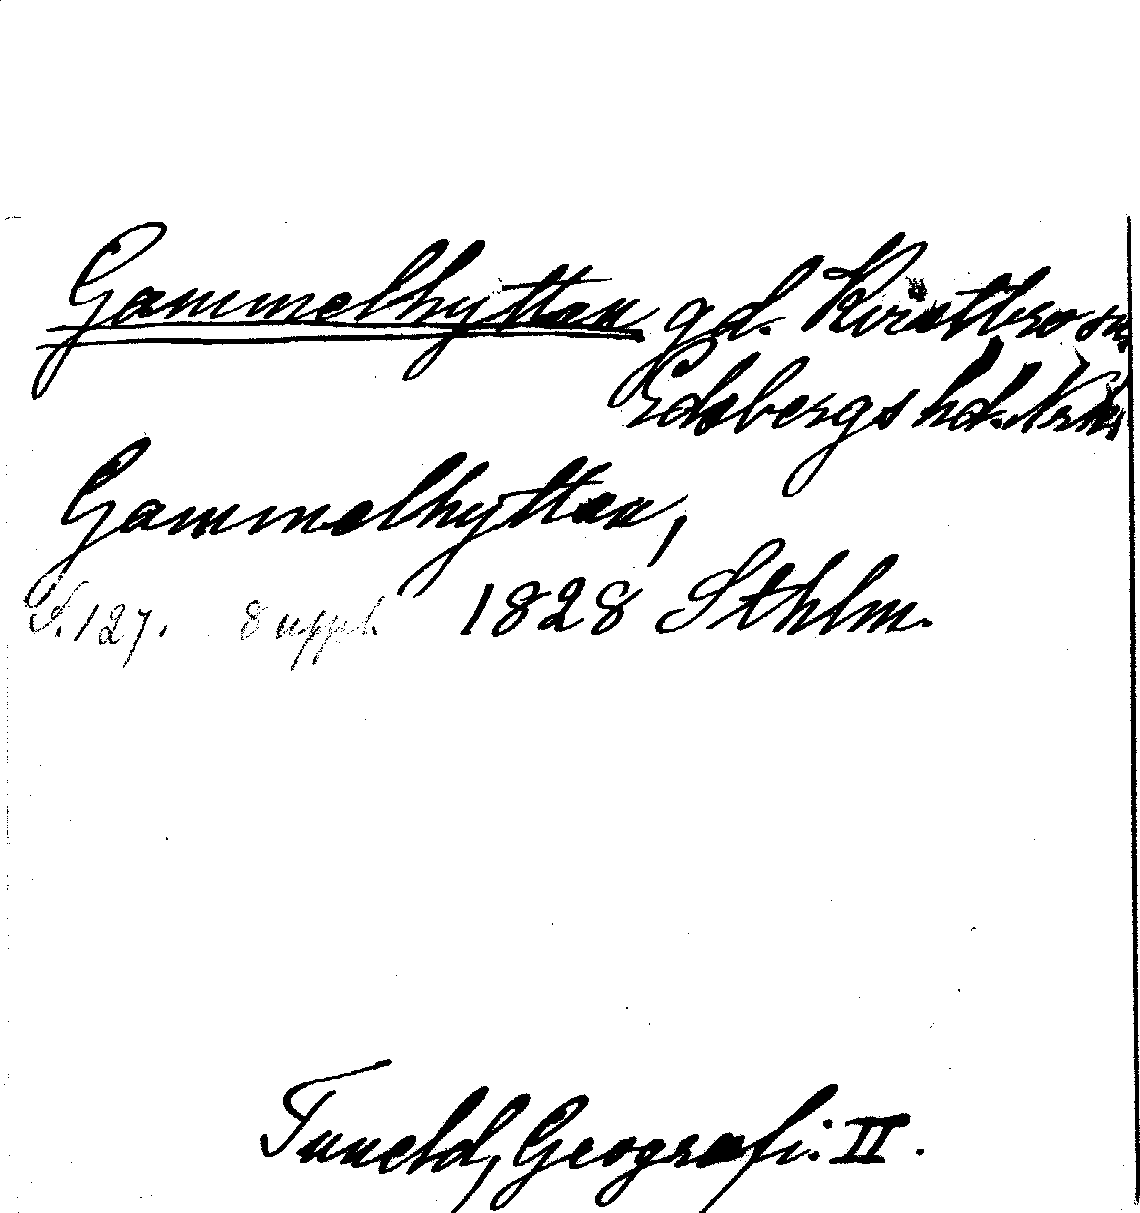 Gammelhyttan gd. Kvistbro sn,
Edsbergs hd. Nrk.
Gammelhyttan,
S. 127. 8 uppl. 1828 Sthlm.
Tuneld, Geografi. II.